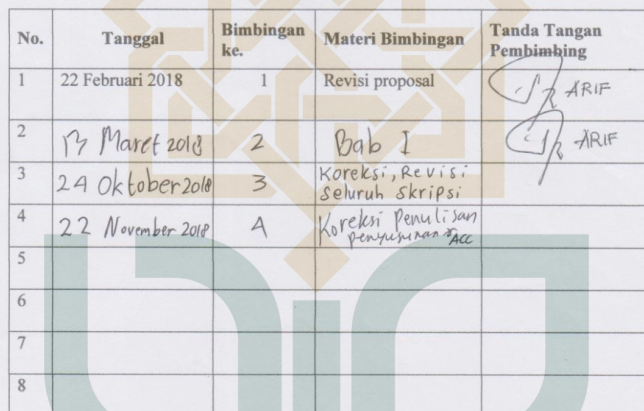 No. Tanggal Bimbingan ke. Materi Bimbingan Tanda Tangan Pembimbing
1 22 Februari 2018 1 Revisi proposal ARIF
2 13 Maret 2018 2 Bab I ARIF
3 24 Oktober 2018 3 Koreksi, Revisi
Seluruh Skripsi
4 22 November 2018 4 Koreksi Penulisan
penyusunan & ACC
5
6
7
8